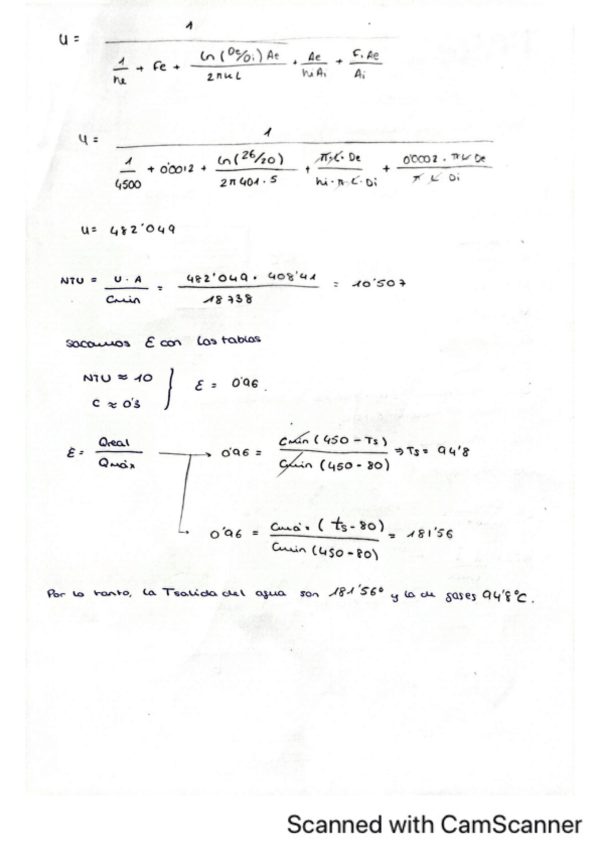 U = 1 / (1/he + Fe + ln(De/Di) Ae / 2πKL + Ae/hiAi + Fi Ae/Ai)
U = 1 / (1/4500 + 0'0012 + ln(26/20) / 2π401·5 + π·L·De / hi·π·L·Di + 0'0002·πL De / π L Di)
U = 482'049
NTU = U·A / Cmin = 482'049 · 408'41 / 18738 = 10'507
Sacamos ε con las tablas
NTU ≈ 10
C ≈ 0'3
} ε = 0'96.
ε = Qreal / Qmáx → 0'96 = Cmin (450 - Ts) / Cmin (450 - 80) ⇒ Ts = 94'8
0'96 = Cmáx (ts - 80) / Cmin (450 - 80) = 181'56
Por lo tanto, la Tsalida del agua son 181'56° y la de gases 94'8°C.
Scanned with CamScanner